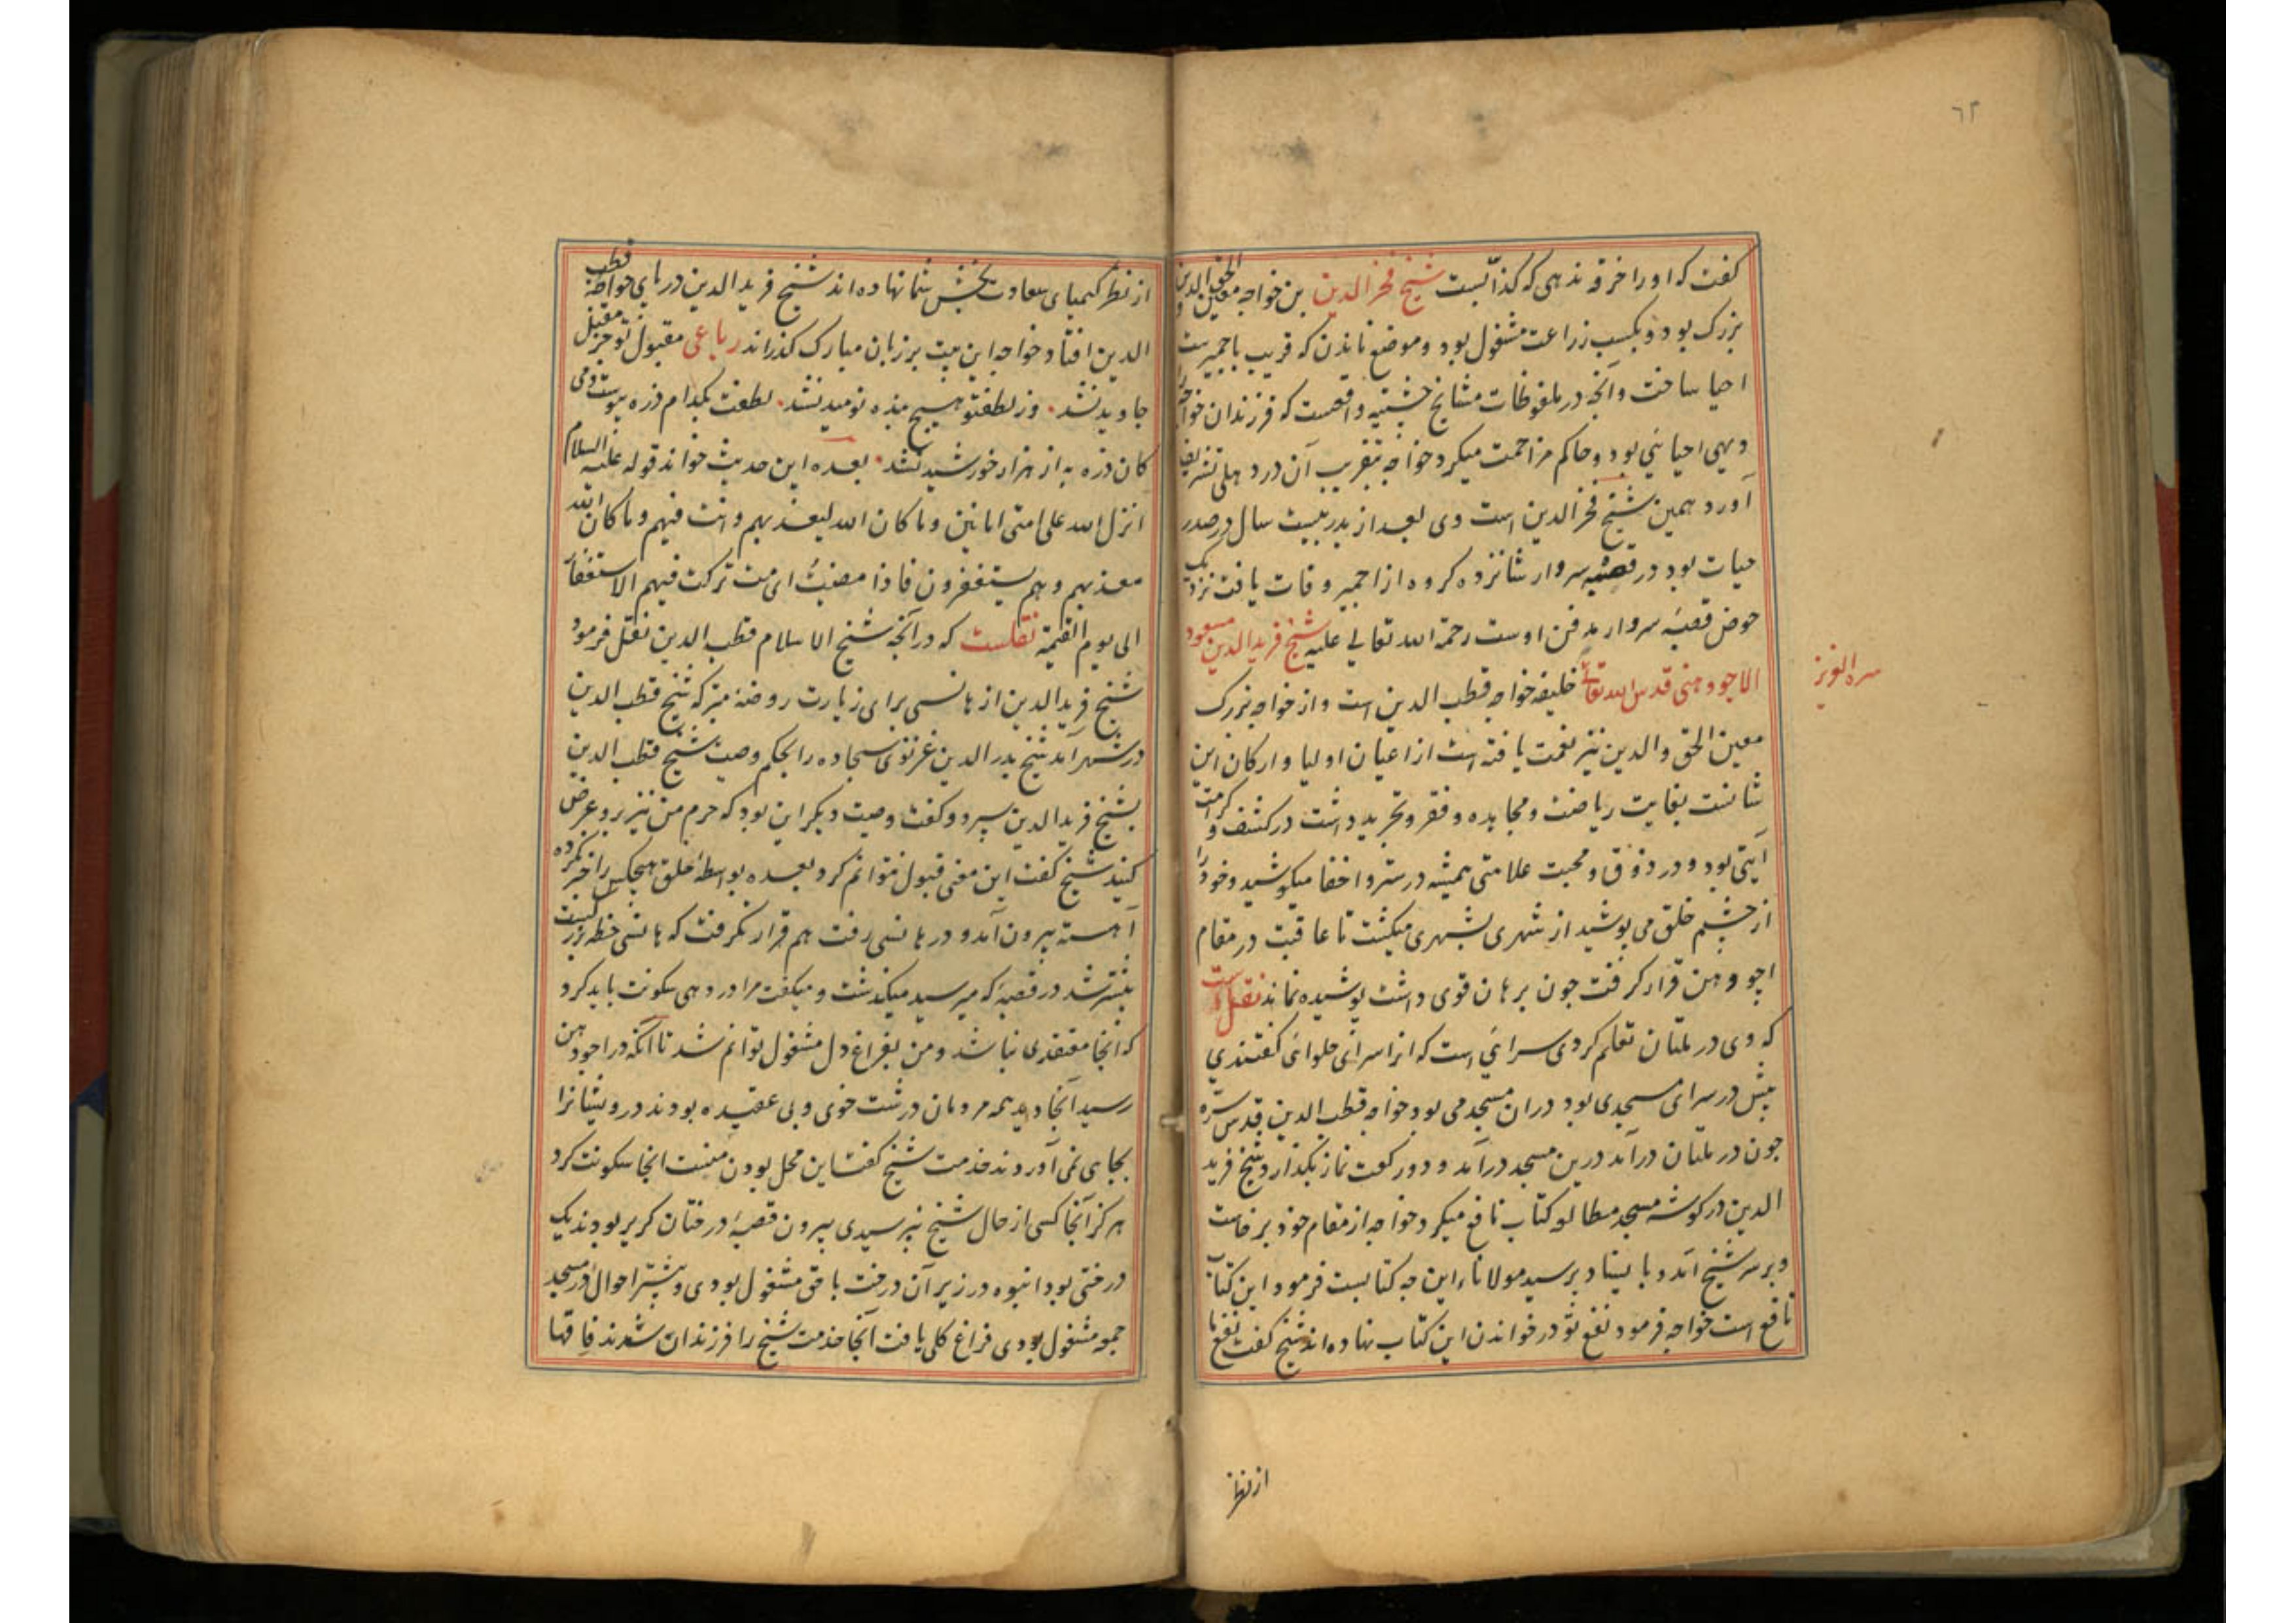 ٦٢
گفت که او را خرقه ندهی که کذابست شیخ فخرالدین بن خواجه معین الحق والدین
بزرک بود و بکسب زراعت مشغول بود و موضع ماندن که قریب باجمیر ست
احیا ساخت و آنچه در ملفوظات مشایخ چشتیه واقعست که فرزندان خواجه را
دیهی احیائی بود و حاکم مزاحمت میکرد خواجه بتقریب آن در دهلی تشریف
آورد همین شیخ فخرالدین است وی بعد از پدر بیست سال در صدر
حیات بود در قصبه سروار شانزده کروه از اجمیر وفات یافت نزدیک
حوض قصبه سروار مدفن اوست رحمة الله تعالی علیه شیخ فریدالدین مسعود
الاجودهنی قدس الله تعالی خلیفه خواجه قطب الدین است و از خواجه بزرک
سره العزیز
معین الحق والدین نیز نعمت یافته است از اعیان اولیا و ارکان این
شانست بغایت ریاضت و مجاهده و فقر و تجرید داشت در کشف و کرامت
آیتی بود و در ذوق و محبت علامتی همیشه در ستر و اخفا میکوشید و خود را
از چشم خلق می پوشید از شهری بشهری میکشت تا عاقبت در مقام
اجودهن قرار کرفت چون برهان قوی داشت پوشیده نماند نقل است
که وی در ملتان تعلم کردی سرائی است که انرا سرای حلوائی گفتندی
پیش در سرای مسجدی بود دران مسجد می بود خواجه قطب الدین قدس سره
چون در ملتان درآمد درین مسجد درآمد و دو رکعت نماز بکذارد شیخ فرید
الدین در کوشه مسجد مطالعه کتاب نافع میکرد خواجه از مقام خود برخاست
و بر سر شیخ آمد و بایستاد پرسید مولانا این چه کتابست فرمود این کتاب
نافع است خواجه فرمود نفع تو در خواندن این کتاب نهاده اند شیخ گفت نفع ما
از نظر
از نظر کیمیای سعادت بخش شما نهاده اند شیخ فریدالدین در پای خواجه قطب
الدین افتاد خواجه این بیت بر زبان مبارک کذراند رباعی مقبول تو جز مقبل
جاوید نشد وز لطف تو هیچ بنده نومید نشد لطفت بکدام ذره پیوست دمی
کان ذره به از هزار خورشید نشد بعده این حدیث خواند قوله علیه السلام
انزل الله علی امتی امانین وما کان الله لیعذبهم وانت فیهم وما کان الله
معذبهم وهم یستغفرون فاذا مضیت ای مت ترکت فیهم الاستغفار
الی یوم القیمة نقلست که در آنچه شیخ الاسلام قطب الدین نقل فرمود
شیخ فریدالدین از هانسی برای زیارت روضه متبرکه شیخ قطب الدین
در شهر آمد شیخ بدرالدین غزنوی سجاده را بحکم وصیت شیخ قطب الدین
بشیخ فریدالدین سپرد و گفت وصیت دیکر این بود که حرم من نیز برو عرض
کنید شیخ گفت این معنی قبول نتوانم کرد بعده بواسطه خلق هیچکس را خبر نکرده
آهسته بیرون آمد و در هانسی رفت هم قرار نکرفت که هانسی خطه بزرکیست
بیشتر شد در قصبه که میرسید میکذشت و میکفت مرا در دهی سکونت باید کرد
که انجا معتقدی نباشد و من بفراغ دل مشغول توانم شد تا آنکه در اجودهن
رسید آنجا دید همه مردمان درشت خوی و بی عقیده بودند درویشانرا
بجای نمی آوردند خدمت شیخ گفت این محل بودن منست انجا سکونت کرد
هرکز آنجا کسی از حال شیخ نپرسیدی بیرون قصبه درختان کریر بودند یک
درختی بود انبوه در زیر آن درخت با حق مشغول بودی و بیشتر احوال در مسجد
جمعه مشغول بودی فراغ کلی یافت آنجا خدمت شیخ را فرزندان شدند فاقها